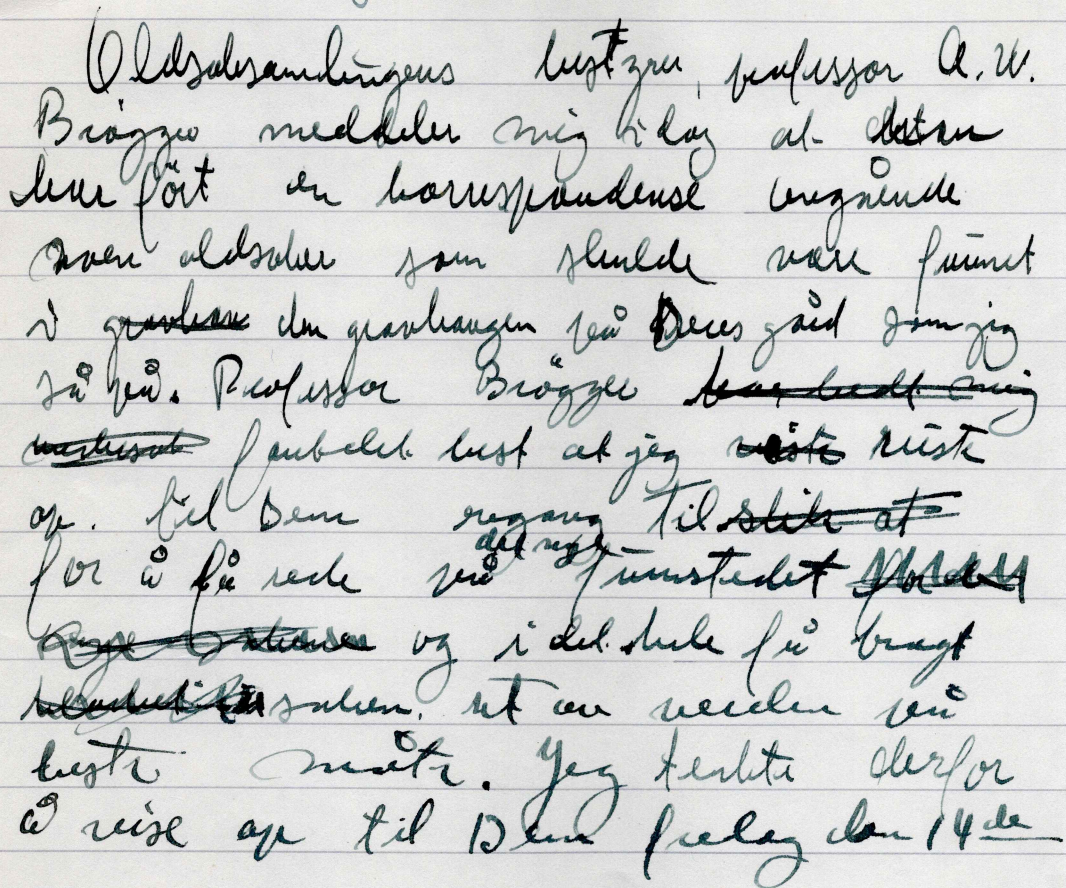 Oldsaksamlingens bestyrer, professor A. W.
Brøgger meddeler mig idag at
har ført en korrespondense angående
noen oldsaker som skulde være funnet
i gravhau den gravhaugen på Deres gård som jeg
så på. Professor Brøgger har bedt mig
fant det best at jeg reiste
op til Dem engang til slik at
for å få rede på det nøi funnstedet for de
og i det hele få bragt
saken ut av verden på
beste måte. Jeg tenkte derfor
å reise op til Dem fredag den 14de